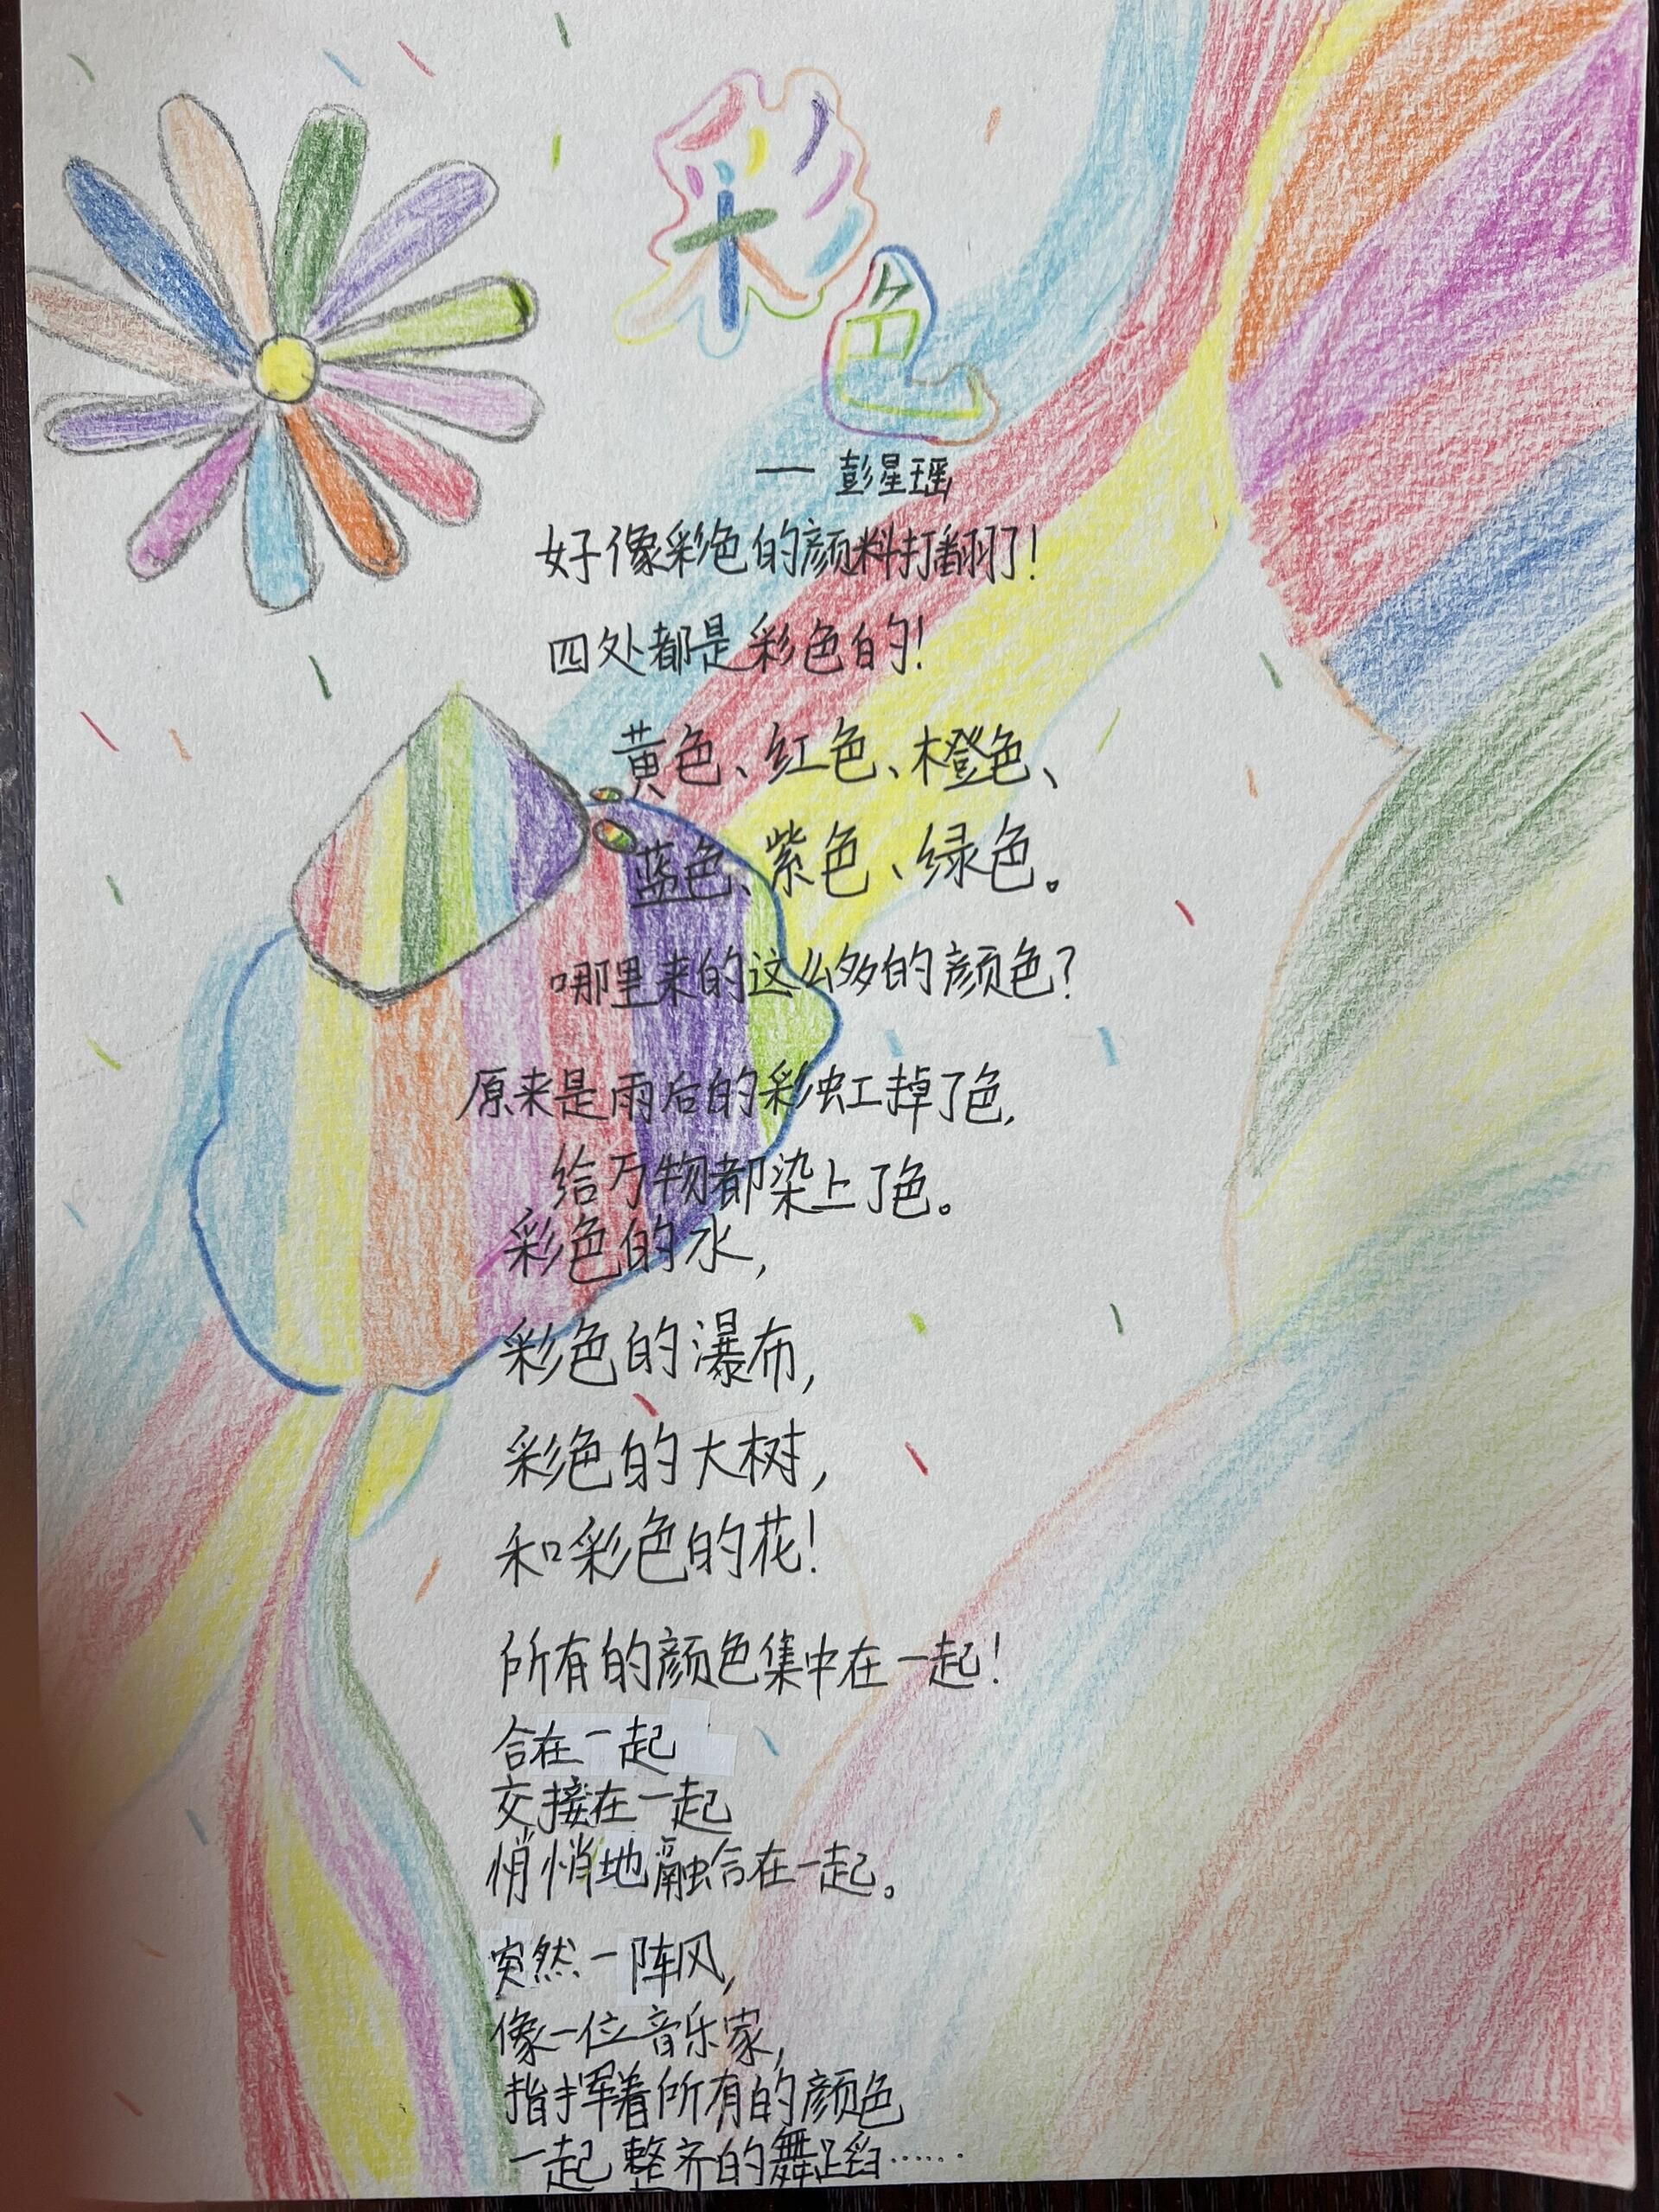 彩色
—— 彭星瑶
好像彩色的颜料打翻了!
四处都是彩色的!
黄色、红色、橙色、
蓝色、紫色、绿色。
哪里来的这么多的颜色?
原来是雨后的彩虹掉了色,
给万物都染上了色。
彩色的水,
彩色的瀑布,
彩色的大树,
和彩色的花!
所有的颜色集中在一起!
合在一起
交接在一起
悄悄地融合在一起。
突然一阵风,
像一位音乐家,
指挥着所有的颜色
一起整齐的舞蹈……